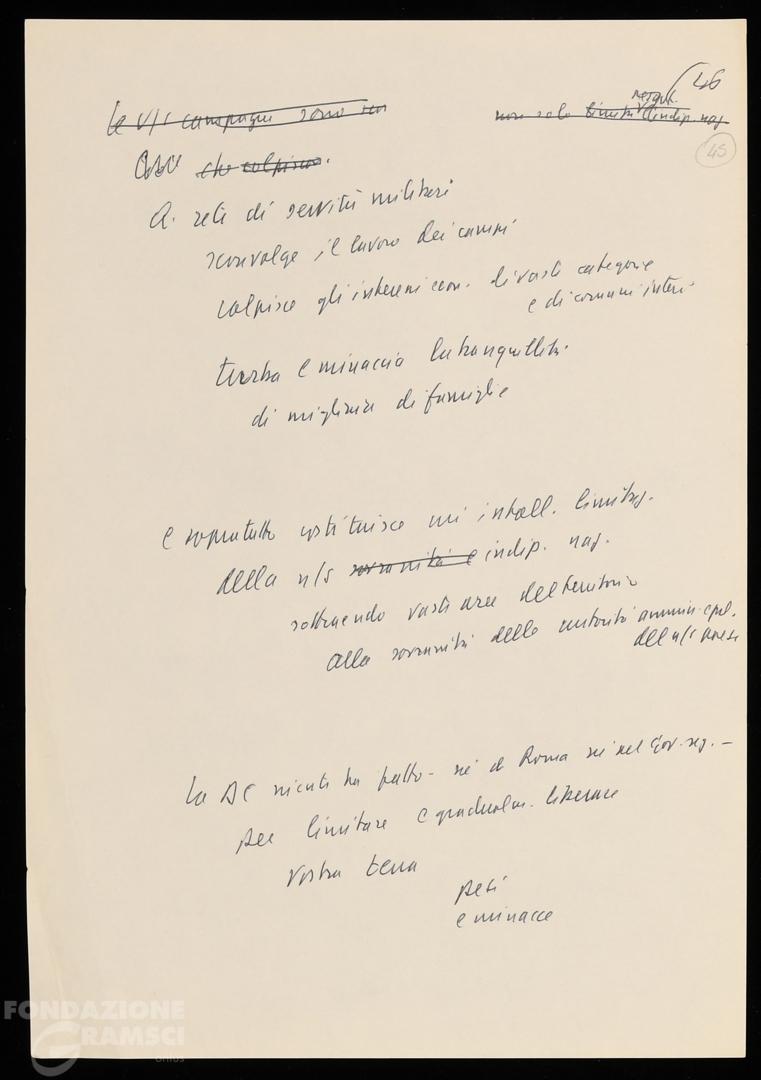 46
45
Le v/s campagne sono
non solo indip. naz.
che colpisce.
A. reti di servitù militari
sconvolge il lavoro dei campi
colpisce gli interessi econ. di vaste categorie
e di comuni interi.
turba e minaccia la tranquillità
di migliaia di famiglie
e sopratutto costituisce un' intoll. limitaz.
della n/s sovranità e indip. naz.
sottraendo vaste aree del territorio
alla sovranità delle autorità ammin. e pol.
del n/s paese
La DC niente ha fatto - né a Roma né nel Gov. reg. -
per limitare e gradualm. liberare
vostra terra
pesi
e minacce
FONDAZIONE
GRAMSCI
onlus